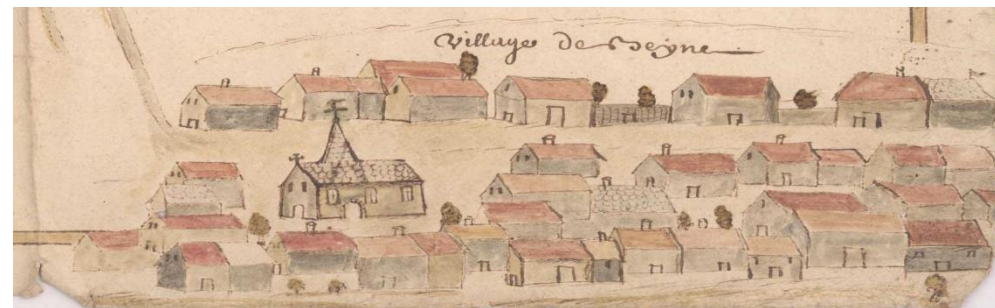 Village de Beyne